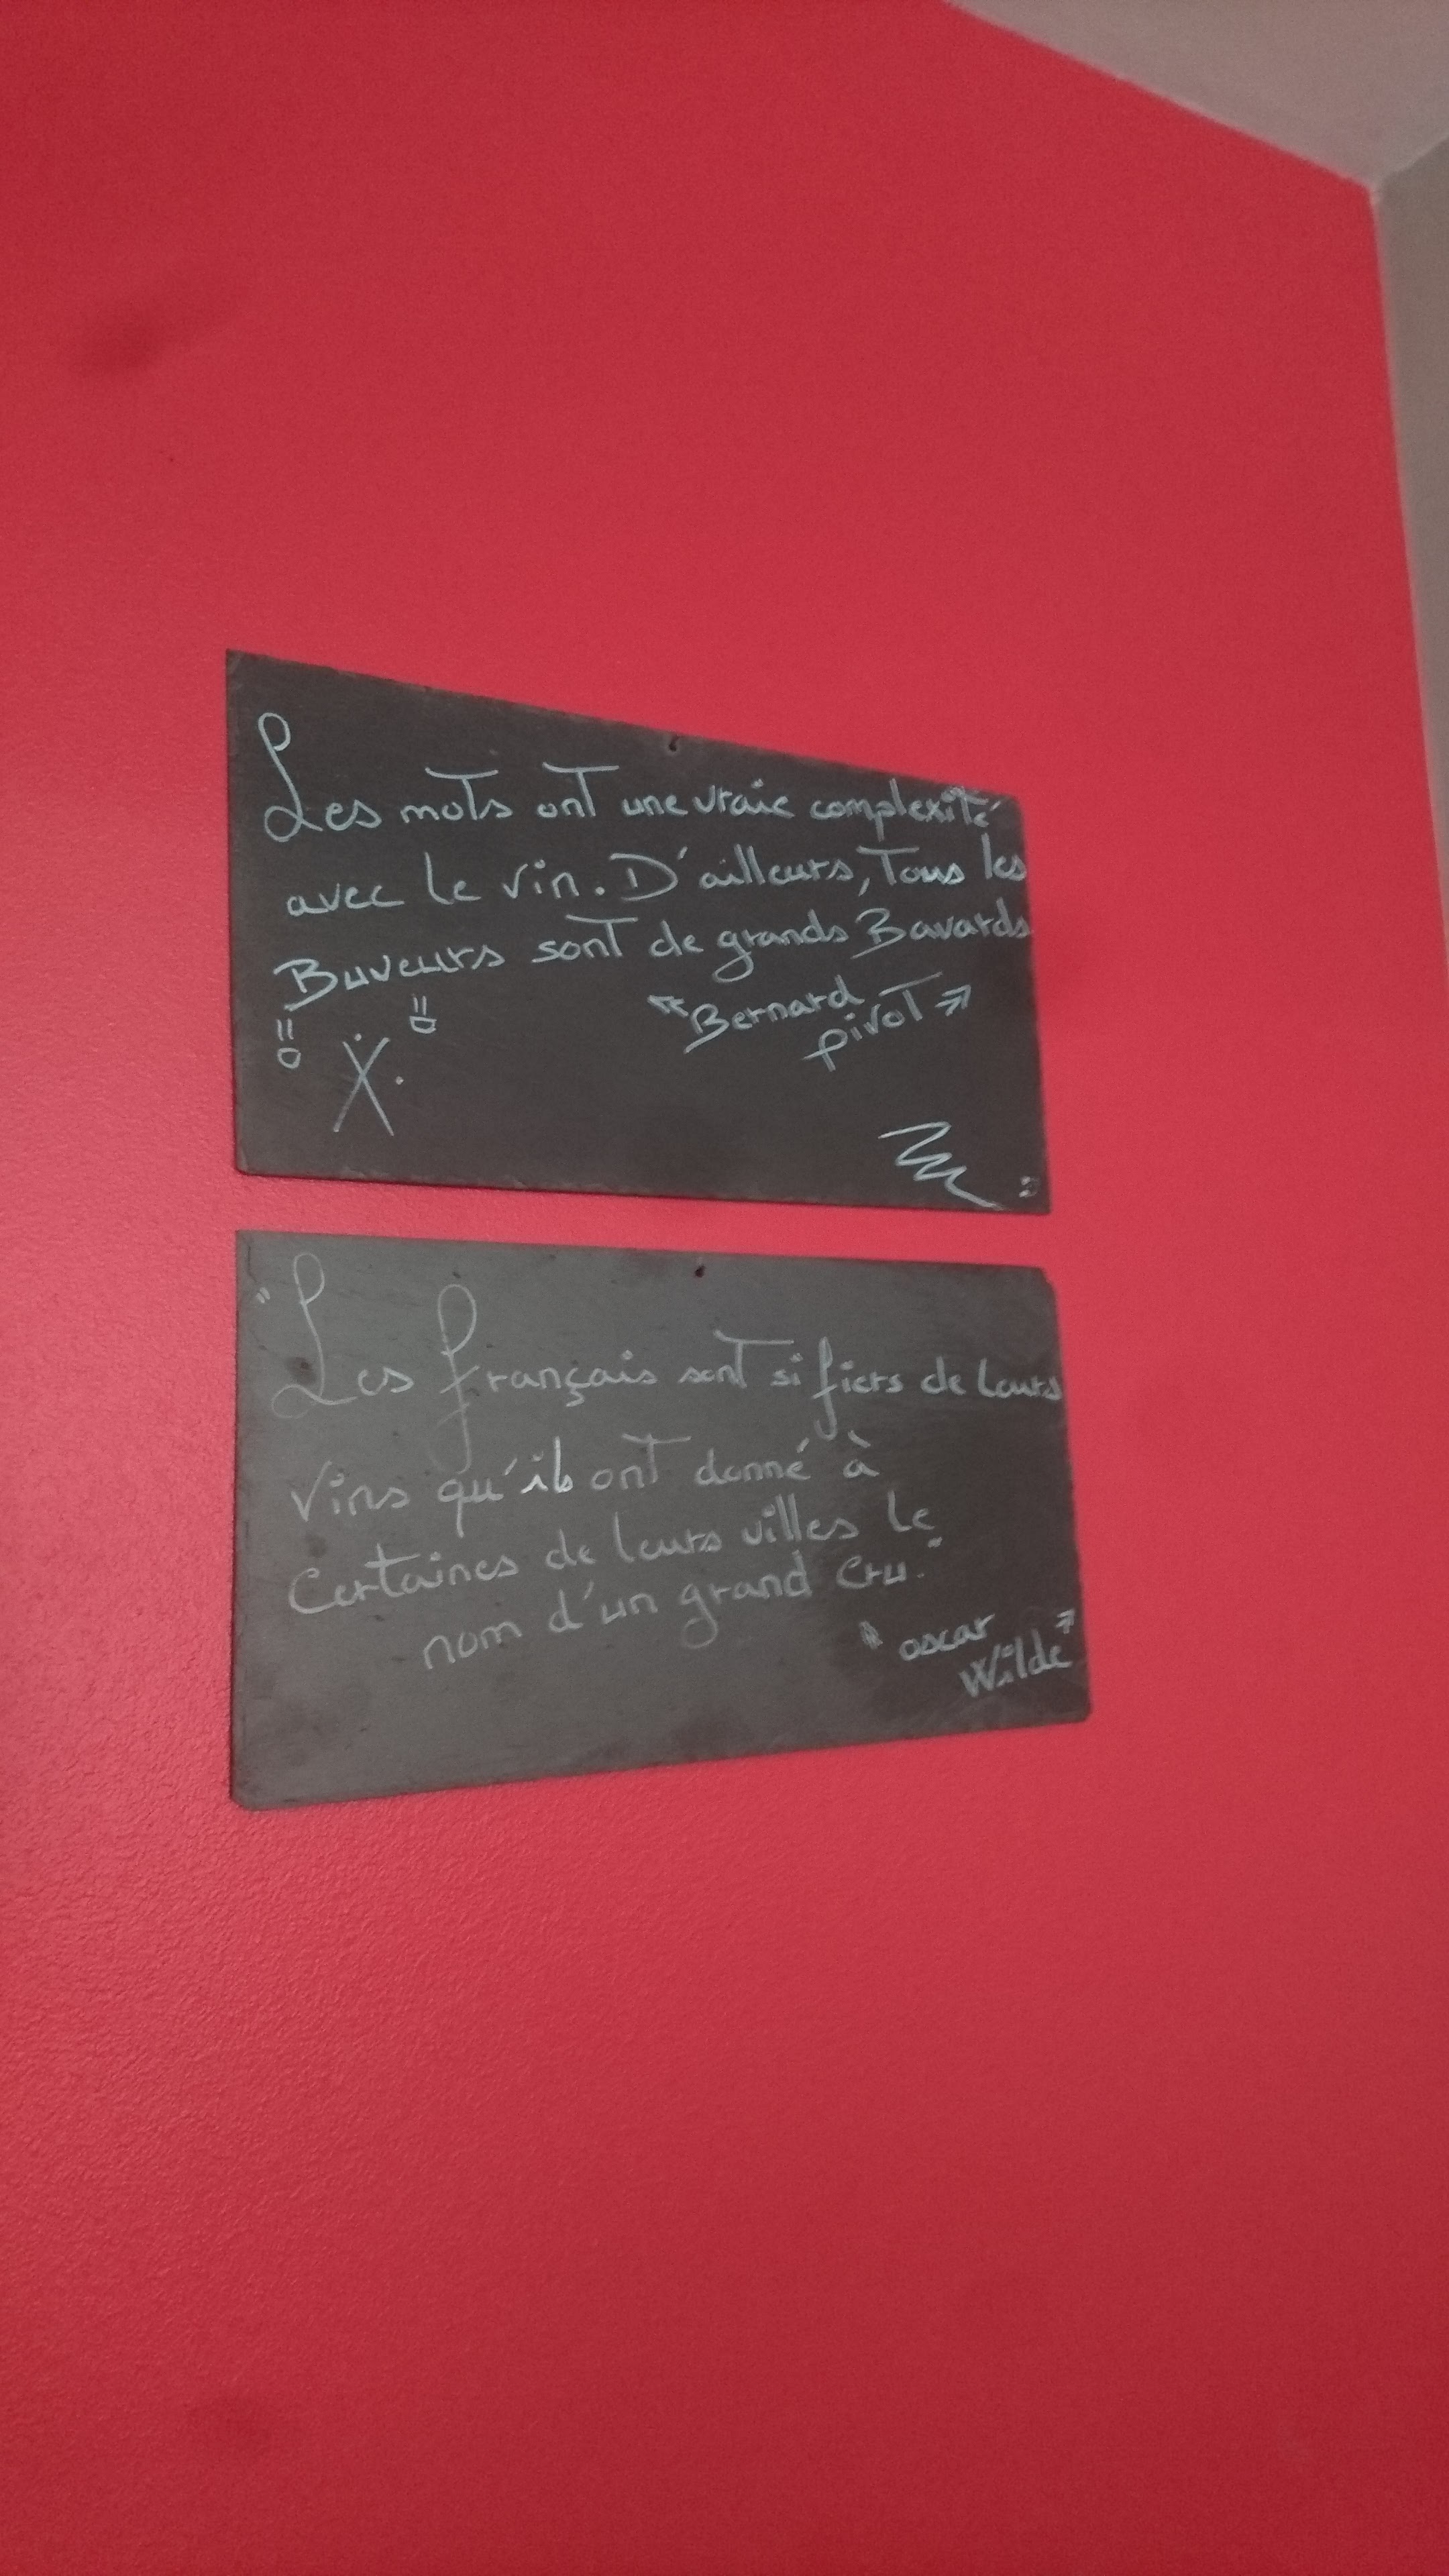 Les mots ont une vraie complexité
avec le vin. D'ailleurs, Tous les
Buveurs sont de grands Bavards
"Bernard
pivot"
"Les français sont si fiers de leurs
vins qu'ils ont donné à
Certaines de leurs villes le
nom d'un grand cru."
" oscar
Wilde "